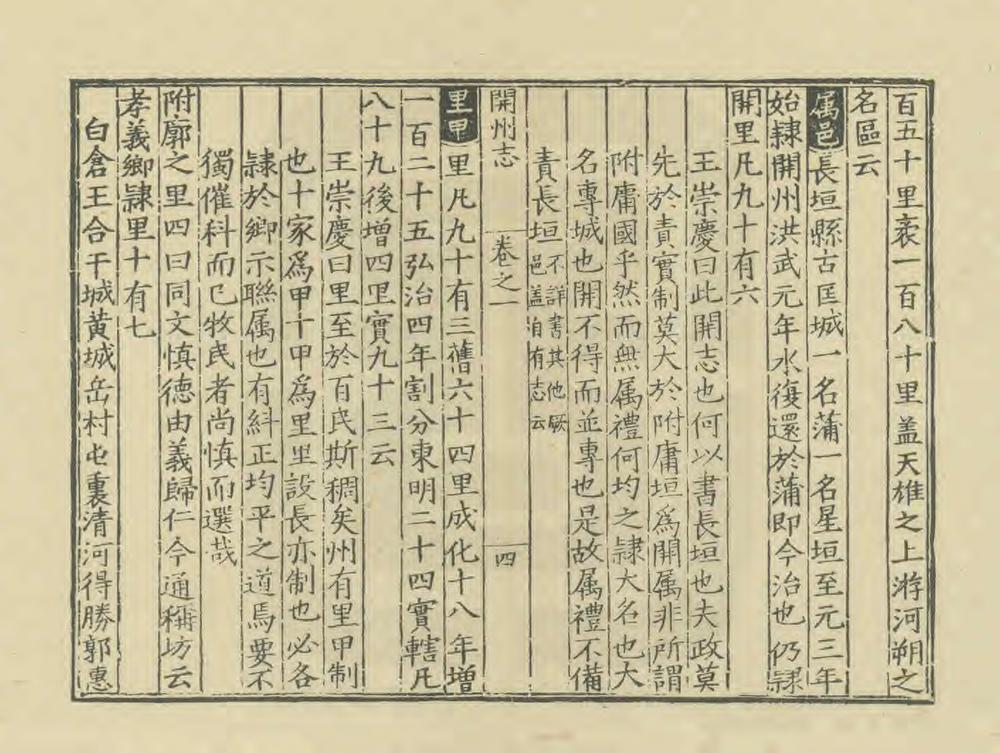 百五十里袤一百八十里盖天雄之上游河朔之
名區云
属邑長垣縣古匡城一名蒲一名星垣至元三年
始隸開州洪武元年水復還於蒲即今治也仍隸
開里凡九十有六
王崇慶曰此開志也何以書長垣也夫政莫
先於責實制莫大於附庸垣爲開属非所謂
附庸國乎然而無属禮何均之隸大名也大
名專城也開不得而並專也是故属禮不備
責長垣不詳書其他厥
邑盖自有志云
開州志 卷之一 四
里甲里凡九十有三舊六十四里成化十八年增
一百二十五弘治四年割分東明二十四實轄凡
八十九後增四里實九十三云
王崇慶曰里至於百民斯稠矣州有里甲制
也十家爲甲十甲爲里里設長亦制也必各
隸於鄉示聯属也有糾正均平之道焉要不
獨催科而已牧民者尚慎而選哉
附廓之里四曰同文慎德由義歸仁今通稱坊云
孝義鄉隸里十有七
白倉王合干城黄城岳村屯裏清河得勝郭惠